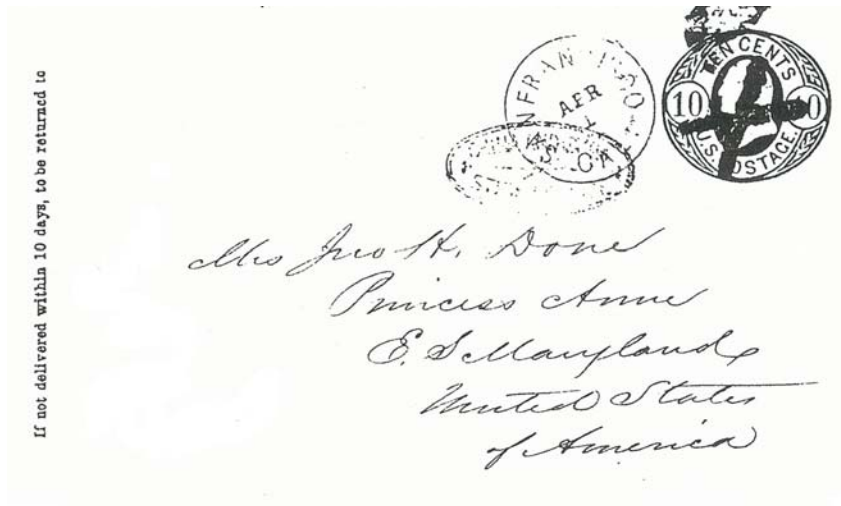 If not delivered within 10 days, to be returned to
SAN FRANCISCO
APR
1
CAL
TEN CENTS
10
U.S. POSTAGE.
Mrs Jno H. Done
Princess Anne
E. S. Maryland
United States
of America